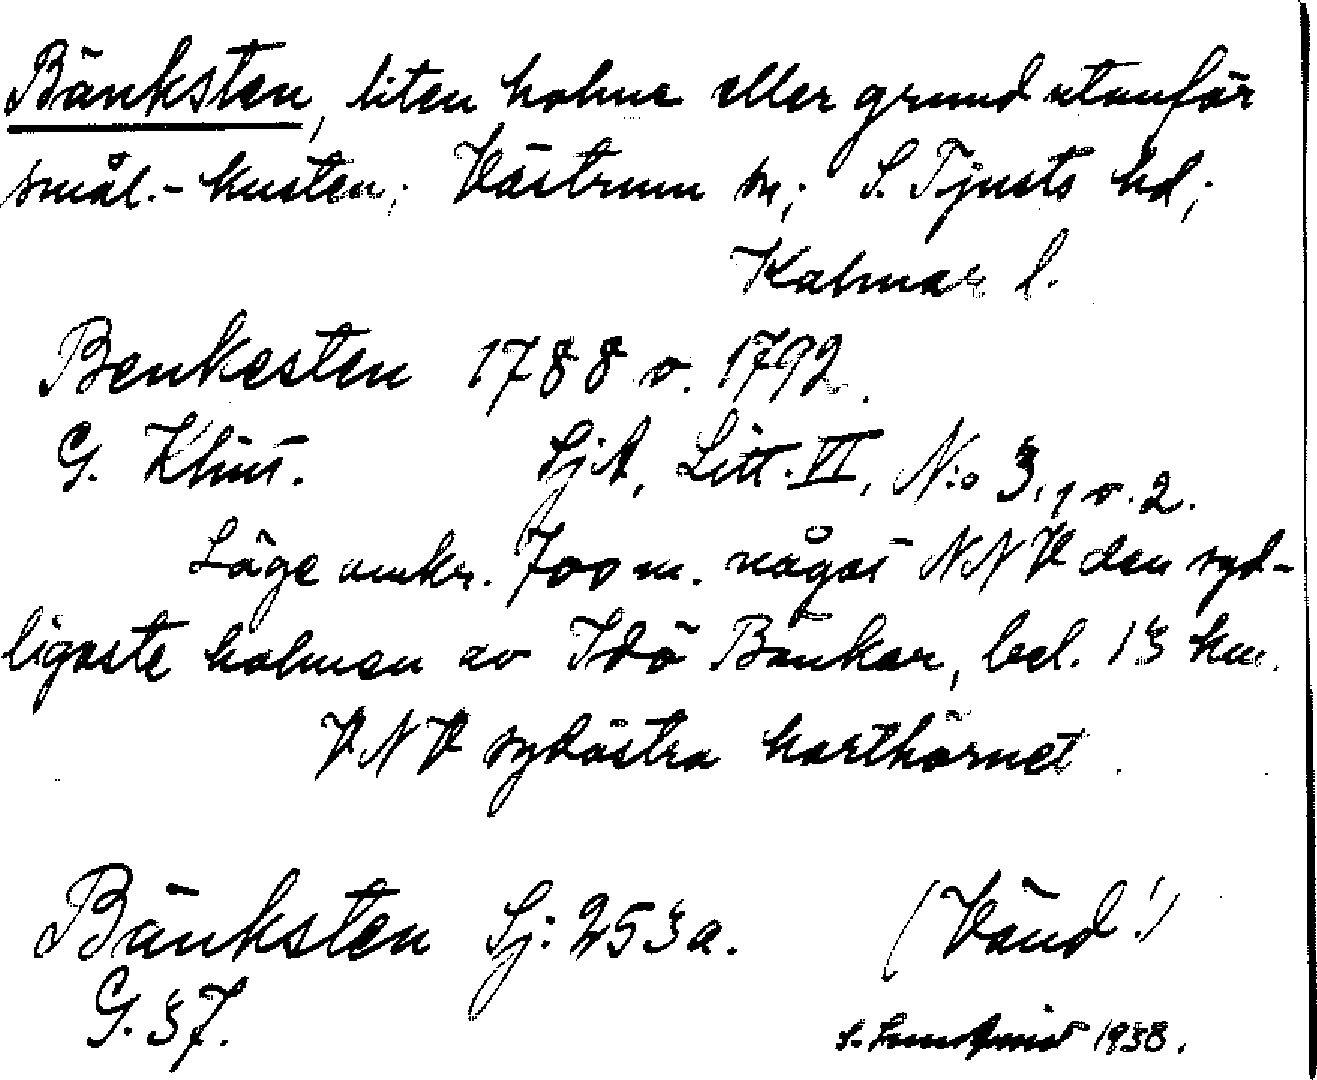 Bänksten, liten holme eller grund utanför
smål.-kusten; Västrum sn; S. Tjusts hd;
Kalmar l.
Benkesten 1788 o. 1792.
G. Klint. SjA, Litt. VI, N:o 3, 1 o. 2.
Läge omkr. 700 m. något NNV den syd-
ligaste holmen av Idö Bänkar, bel. 13 km.
VNV sydöstra karthörnet.
Bänksten Sj. 253a. (Vänd!)
G. 37.
S. 1938.